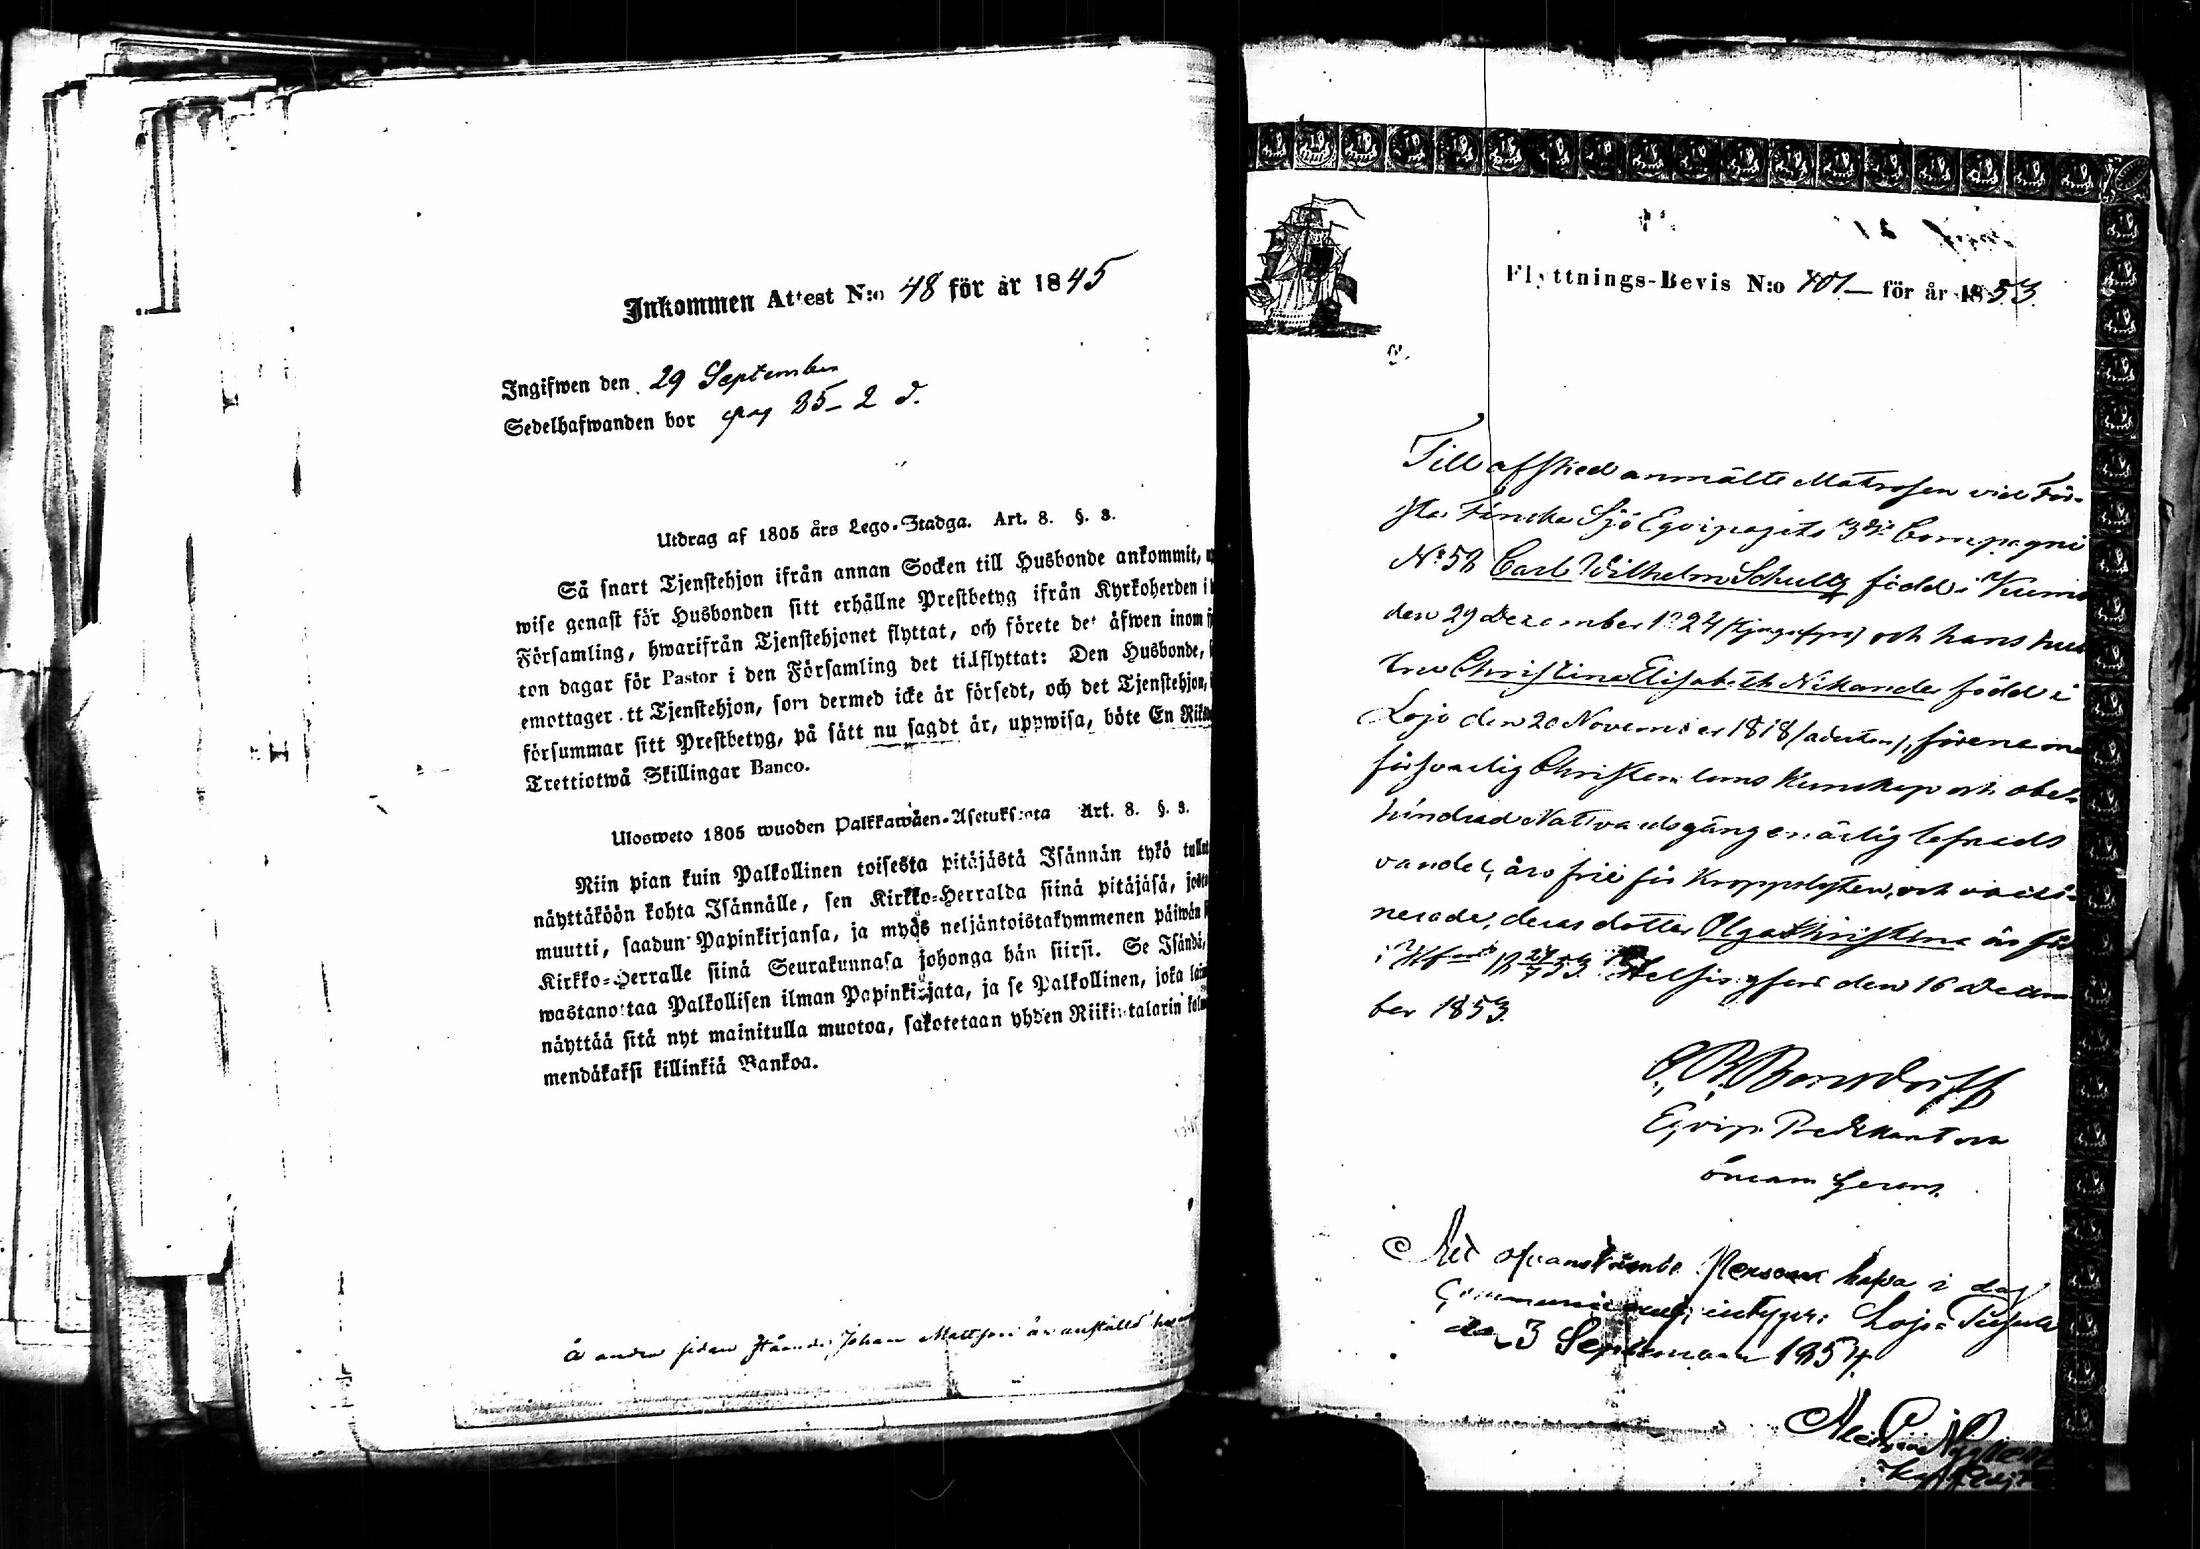 Inkommen Attest N:o 48 för år 1845
Ingifwen den 29 September
Sedelhafwanden bor pag 85-2 d.
Utdrag af 1805 års Lego-Stadga. Art. 8. §. 3.
Så snart Tjenstehjon ifrån annan Socken till Husbonde ankommit,
wise genast för Husbonden sitt erhållne Prestbetyg ifrån Kyrkoherden i
Församling, hwarifrån Tjenstehjonet flyttat, och förete det äfwen inom
ton dagar för Pastor i den Församling det tillflyttat: Den Husbonde,
emottager ett Tjenstehjon, som dermed icke är försedt, och det Tjenstehjon,
försummar sitt Prestbetyg, på sätt nu sagdt är, uppwisa, böte En Riks
Trettiotwå Skillingar Banco.
Ulosweto 1805 wuoden Palkkawäen-Asetuksesta Art. 8. §. 3.
Niin pian kuin Palkollinen toisesta pitäjästä Isännän tykö tullut
näyttäköön kohta Isännälle, sen Kirkko-Herralda siinä pitäjäsä, josta
muutti, saadun Papinkirjansa, ja myös neljäntoistakymmenen päiwän
Kirkko-Herralle siinä Seurakunnasa johonga hän siirsi. Se Isändä,
wastanottaa Palkollisen ilman Papinkirjata, ja se Palkollinen, joka
näyttää sitä nyt mainitulla muotoa, sakotetaan yhden Riikintalarin kolme
mendäkaksi killinkiä Bankoa.
Å andra sidan stående Johan Mattsson är anställd
Flyttnings-Bevis N:o 401 — för år 1853
Till afsked anmälte Matrosen vid För-
sta Finska Sjö Eqvipagets 3dje Compagni
No 58 Carl Wilhelm Schultz född i Kumo
den 29 December 1824 och hans hus
tru Christina Elisabeth Nikander född i
Lojo den 20 November 1818, förena me
försvarlig Christendoms Kunskap och obe-
hindrad Nattvardsgång en ärlig lefnads
vandel, äro frie för Kropps lyten, och vacci-
nerade, deras dotter Olga Christina är föd
i Hfors 18 27/7 53. Helsingfors den 16 Decem
ber 1853.
Bonsdorff
Eqvip. Predikant
Att ofvannämnde Personer hafva i dag
Communicerat, intygar Lojo
den 3 September 1854.